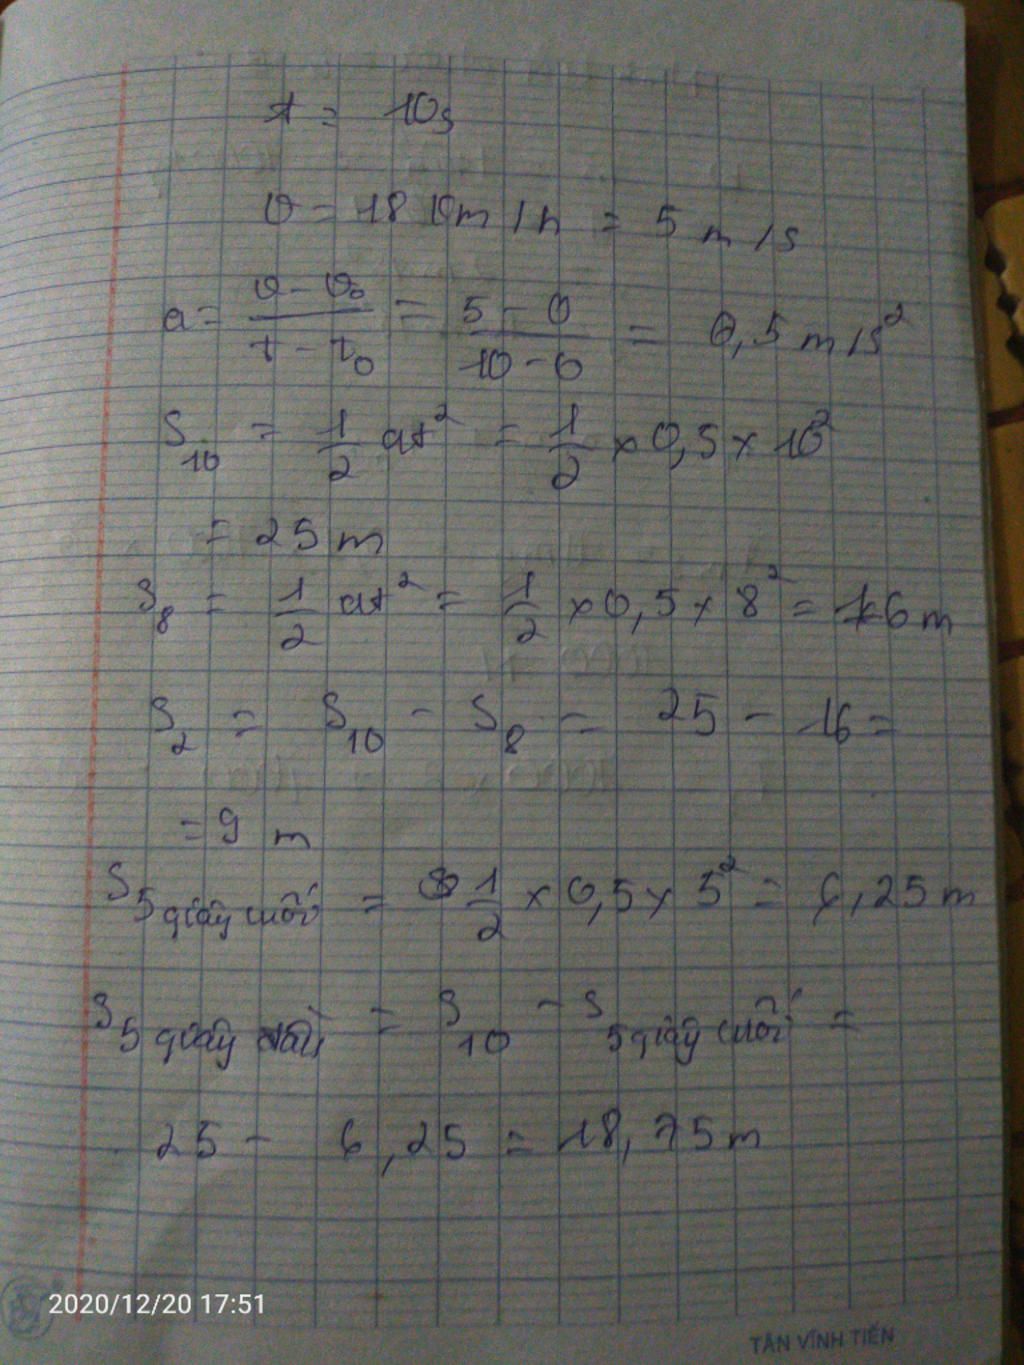 t = 10s
v = 18 km/h = 5 m/s
a = \frac{v - v_0}{t - t_0} = \frac{5 - 0}{10 - 0} = 0,5 m/s²
S_{10} = \frac{1}{2} at² = \frac{1}{2} × 0,5 × 10²
= 25 m
S_8 = \frac{1}{2} at² = \frac{1}{2} × 0,5 × 8² = 16 m
S_2 = S_{10} - S_8 = 25 - 16 =
= 9 m
S_{5 giây cuối} = \frac{1}{2} × 0,5 × 5² = 6,25 m
S_{5 giây đầu} = S_{10} - S_{5 giây cuối} =
25 - 6,25 = 18,75 m
2020/12/20 17:51
TÂN VĨNH TIẾN